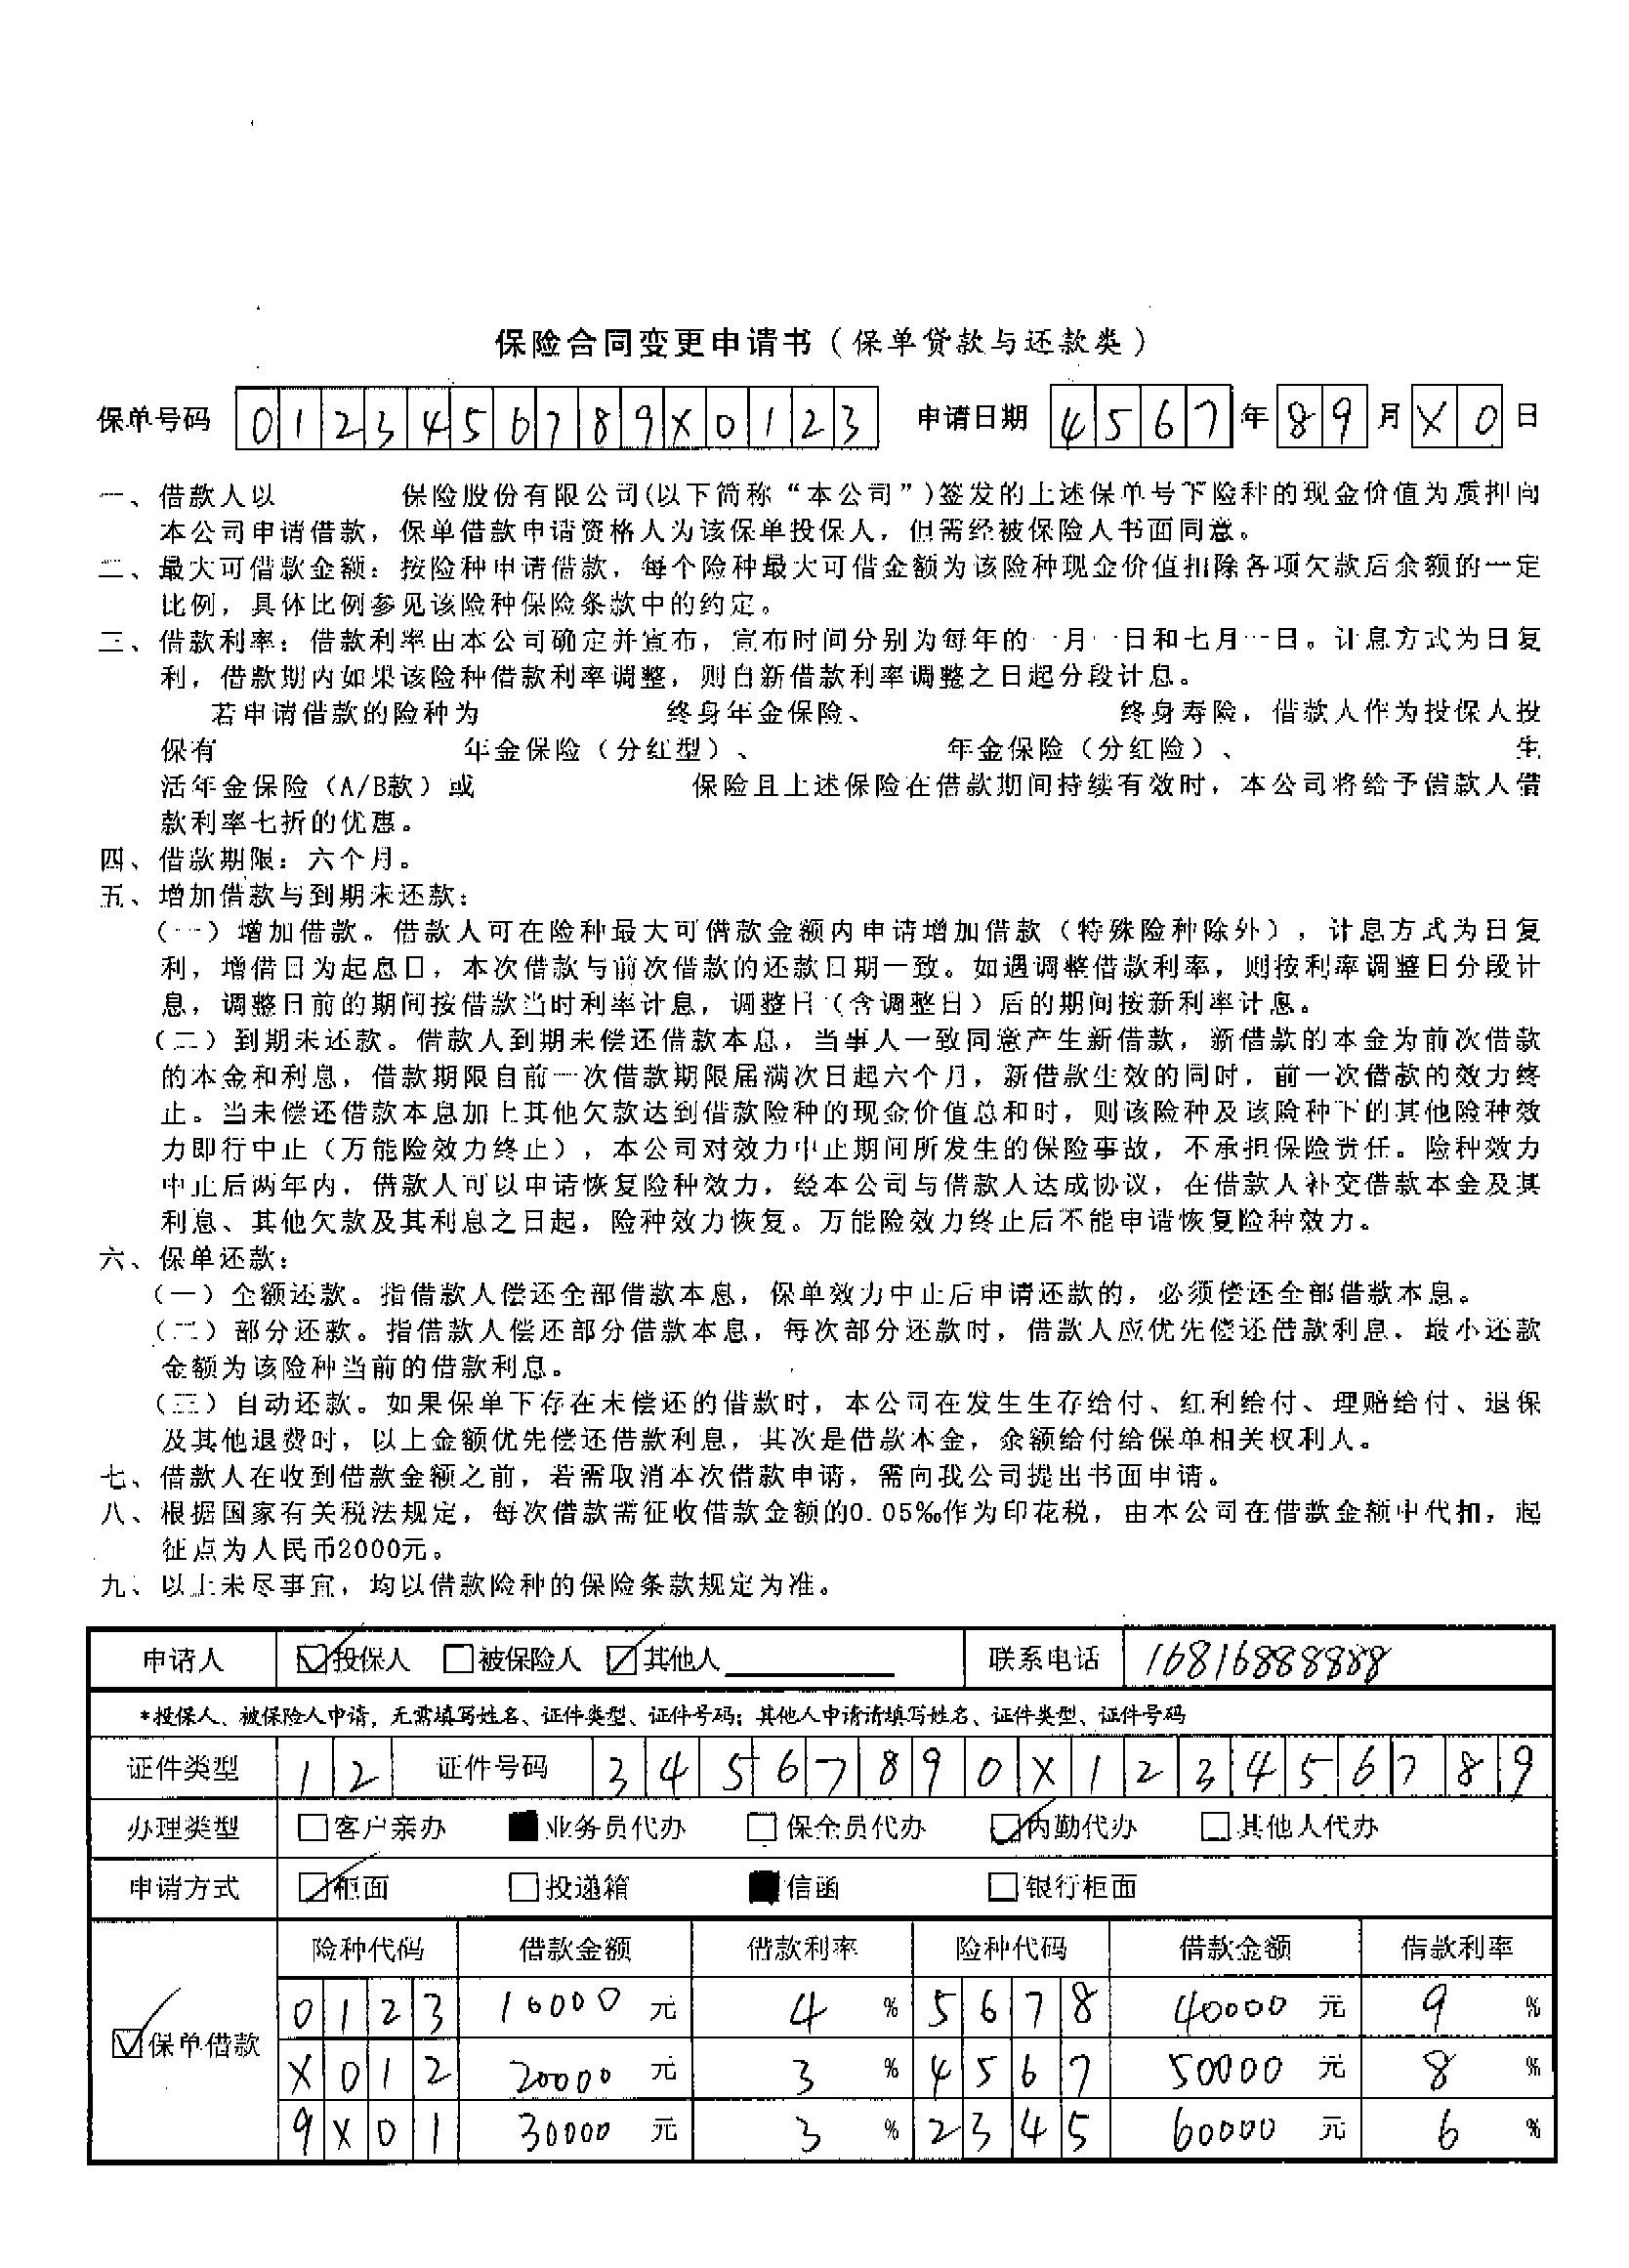 保险合同变更申请书（保单贷款与还款类）
保单号码 0123456789X0123 申请日期 4567年89月X0日
一、借款人以 保险股份有限公司(以下简称“本公司”)签发的上述保单号下险种的现金价值为质押向
本公司申请借款，保单借款申请资格人为该保单投保人，但需经被保险人书面同意。
二、最大可借款金额：按险种申请借款，每个险种最大可借金额为该险种现金价值扣除各项欠款后余额的一定
比例，具体比例参见该险种保险条款中的约定。
三、借款利率：借款利率由本公司确定并宣布，宣布时间分别为每年的一月一日和七月一日。计息方式为日复
利，借款期内如果该险种借款利率调整，则自新借款利率调整之日起分段计息。
若申请借款的险种为 终身年金保险、 终身寿险，借款人作为投保人投
保有 年金保险（分红型）、 年金保险（分红险）、 生
活年金保险（A/B款）或 保险且上述保险在借款期间持续有效时，本公司将给予借款人借
款利率七折的优惠。
四、借款期限：六个月。
五、增加借款与到期未还款：
（一）增加借款。借款人可在险种最大可借款金额内申请增加借款（特殊险种除外），计息方式为日复
利，增借日为起息日，本次借款与前次借款的还款日期一致。如遇调整借款利率，则按利率调整日分段计
息，调整日前的期间按借款当时利率计息，调整日（含调整日）后的期间按新利率计息。
（二）到期未还款。借款人到期未偿还借款本息，当事人一致同意产生新借款，新借款的本金为前次借款
的本金和利息，借款期限自前一次借款期限届满次日起六个月，新借款生效的同时，前一次借款的效力终
止。当未偿还借款本息加上其他欠款达到借款险种的现金价值总和时，则该险种及该险种下的其他险种效
力即行中止（万能险效力终止），本公司对效力中止期间所发生的保险事故，不承担保险责任。险种效力
中止后两年内，借款人可以申请恢复险种效力，经本公司与借款人达成协议，在借款人补交借款本金及其
利息、其他欠款及其利息之日起，险种效力恢复。万能险效力终止后不能申请恢复险种效力。
六、保单还款：
（一）全额还款。指借款人偿还全部借款本息，保单效力中止后申请还款的，必须偿还全部借款本息。
（二）部分还款。指借款人偿还部分借款本息，每次部分还款时，借款人应优先偿还借款利息，最小还款
金额为该险种当前的借款利息。
（三）自动还款。如果保单下存在未偿还的借款时，本公司在发生生存给付、红利给付、理赔给付、退保
及其他退费时，以上金额优先偿还借款利息，其次是借款本金，余额给付给保单相关权利人。
七、借款人在收到借款金额之前，若需取消本次借款申请，需向我公司提出书面申请。
八、根据国家有关税法规定，每次借款需征收借款金额的0.05‰作为印花税，由本公司在借款金额中代扣，起
征点为人民币2000元。
九、以上未尽事宜，均以借款险种的保险条款规定为准。
申请人 投保人 被保险人 其他人 联系电话 16816888888
*投保人、被保险人申请，无需填写姓名、证件类型、证件号码；其他人申请请填写姓名、证件类型、证件号码
证件类型 12 证件号码 34567890X123456789
办理类型 客户亲办 业务员代办 保全员代办 内勤代办 其他人代办
申请方式 柜面 投递箱 信函 银行柜面
险种代码 借款金额 借款利率 险种代码 借款金额 借款利率
0123 10000 元 4 % 5678 40000 元 9 %
保单借款
X012 20000 元 3 % 4567 50000 元 8 %
9X01 30000 元 3 % 2345 60000 元 6 %